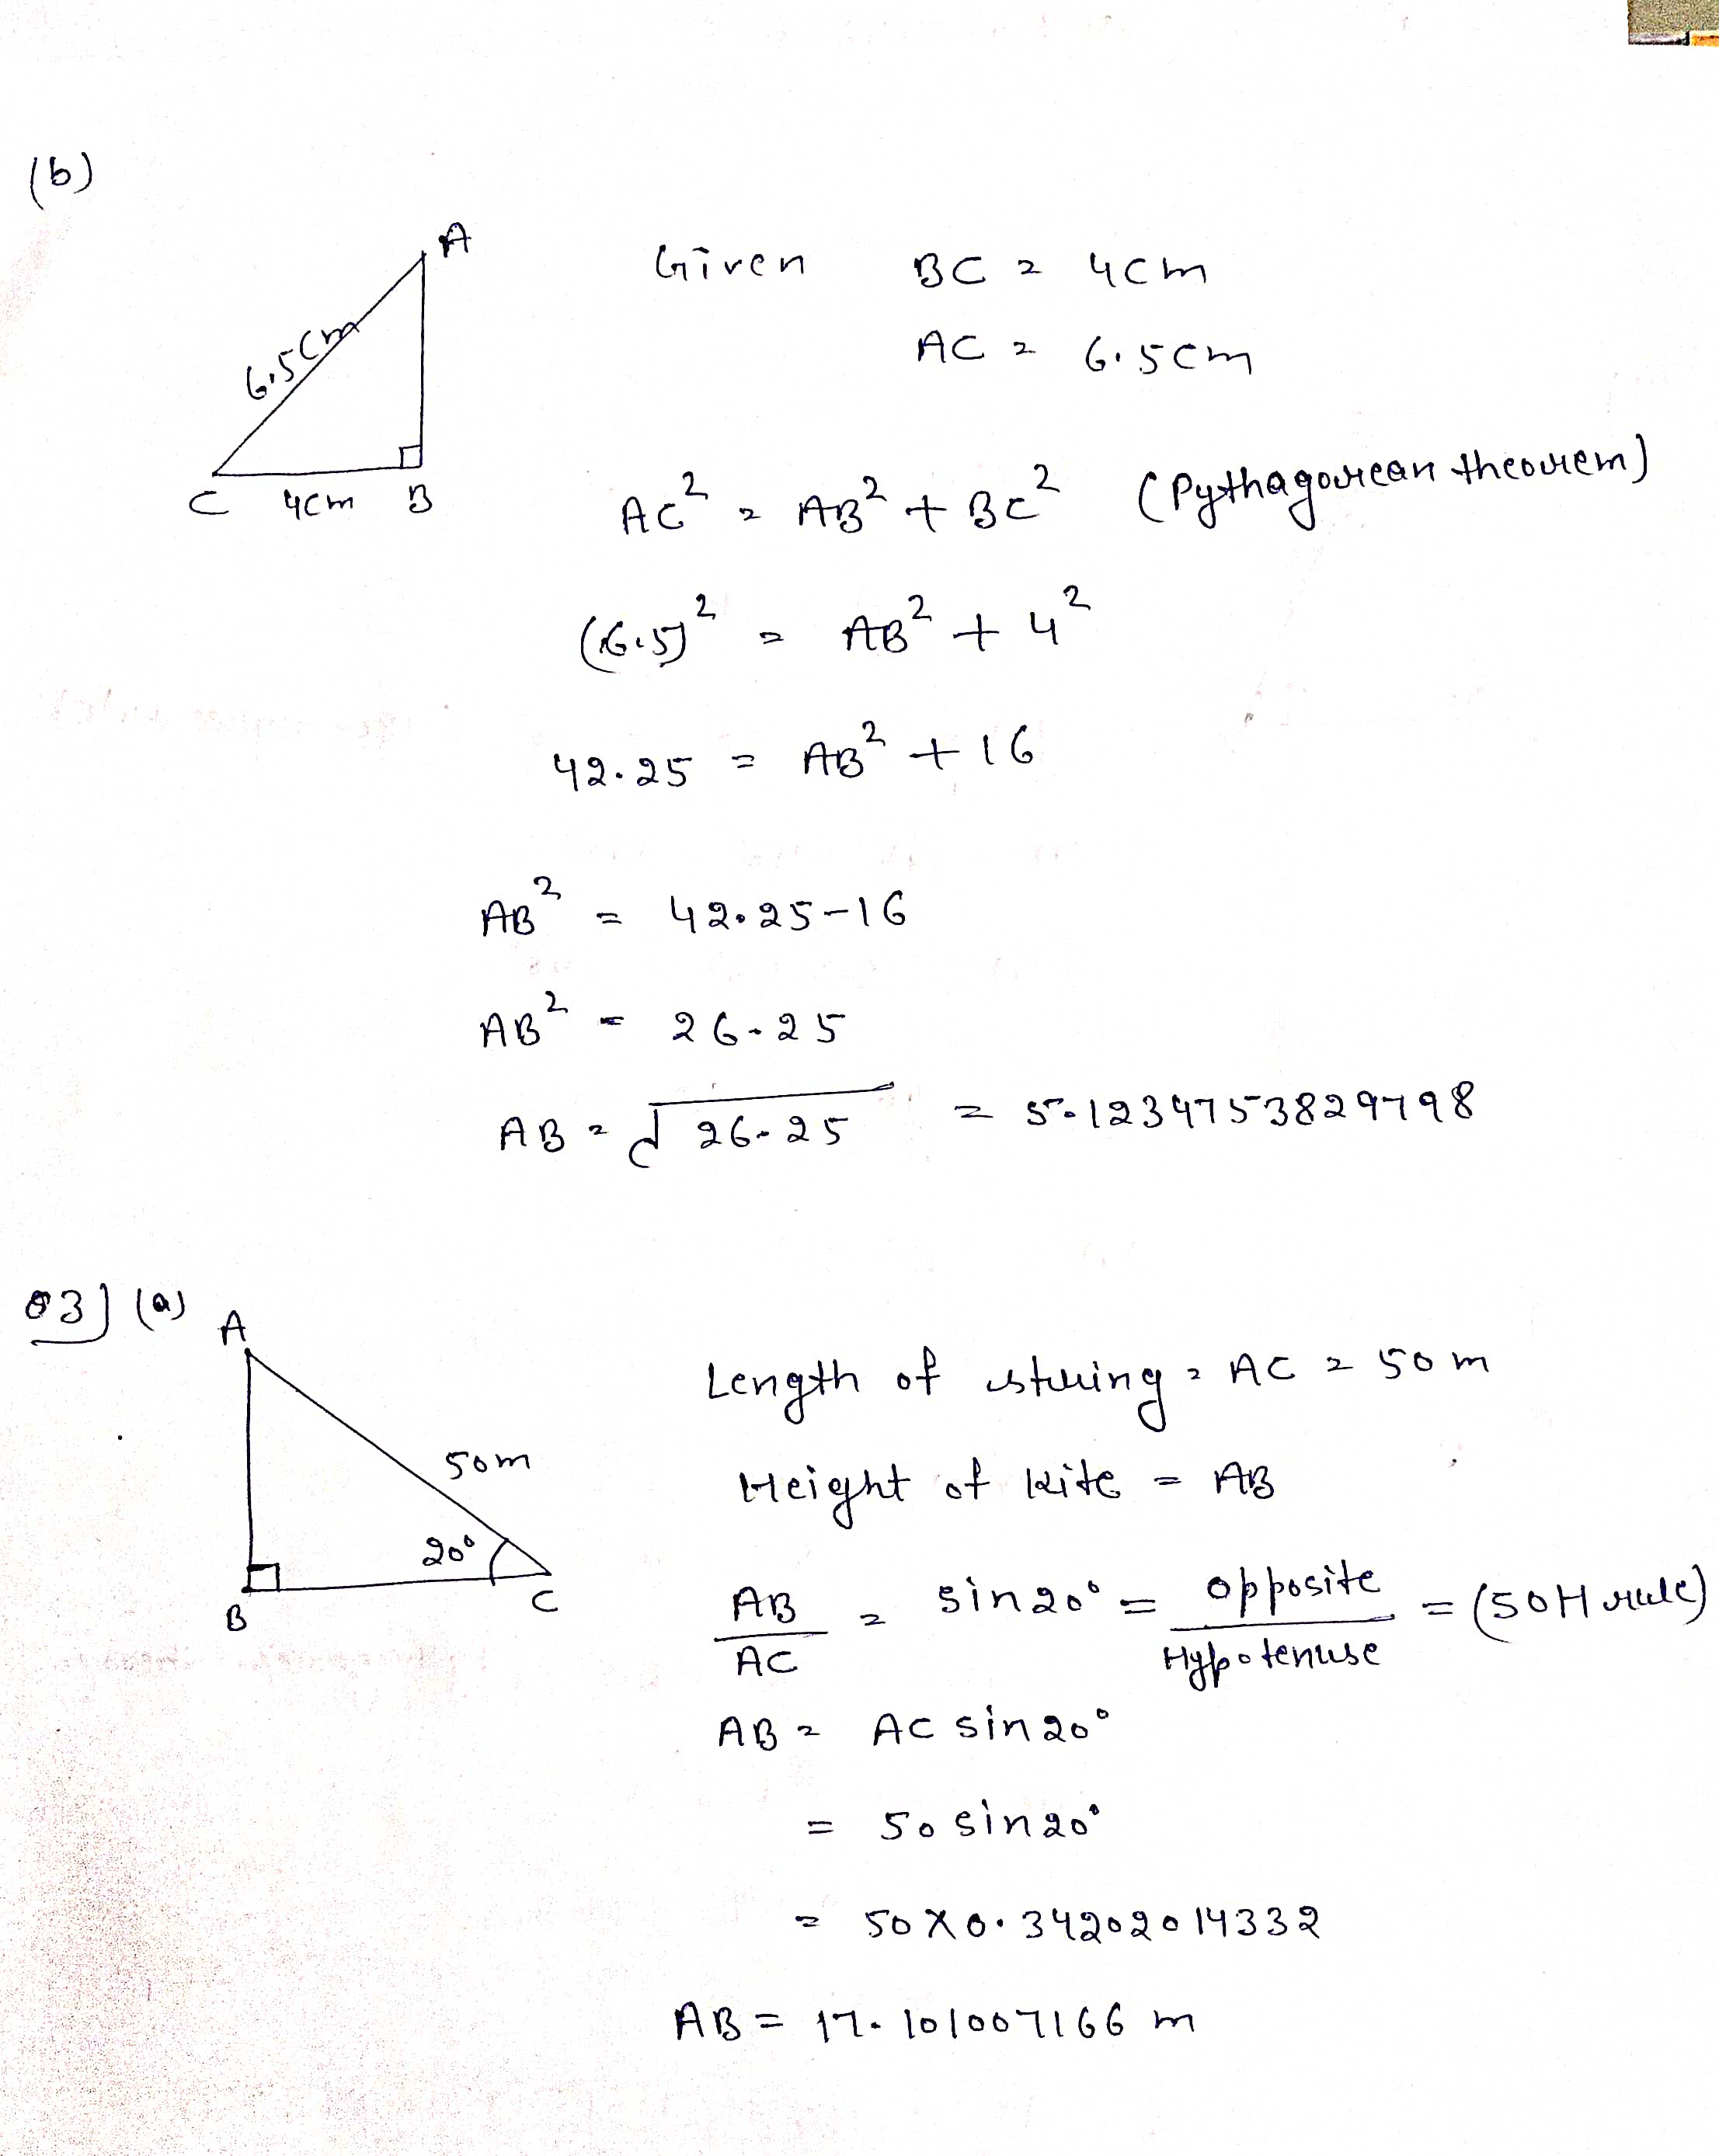 (b)
A
6.5cm
C 4cm B
Given BC = 4cm
AC = 6.5cm
AC² = AB² + BC² (Pythagorean theorem)
(6.5)² = AB² + 4²
42.25 = AB² + 16
AB² = 42.25-16
AB² = 26.25
AB = √26.25 = 5.1234753829798
Q3] (a)
A
50m
20°
B C
Length of string = AC = 50m
Height of kite = AB
AB/AC = sin20° = opposite/Hypotenuse = (SOH rule)
AB = AC sin20°
= 50 sin20°
= 50 X 0.34202014332
AB = 17.101007166 m